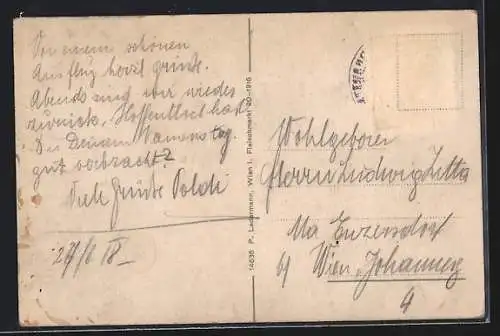 Von einem schönen
Ausflug herzl. Grüße.
Abends sind wir wieder
zurück. Hoffentlich hast
Du Deinen Namenstag
gut verbracht?
Viele Grüße Poldi
27/8 18
14636 P. Ledermann, Wien I, Fleischmarkt 20-1916
Wohlgeboren
Herrn Ludwig Zetta
Ma Enzersdorf
b/ Wien, Johannesg
4